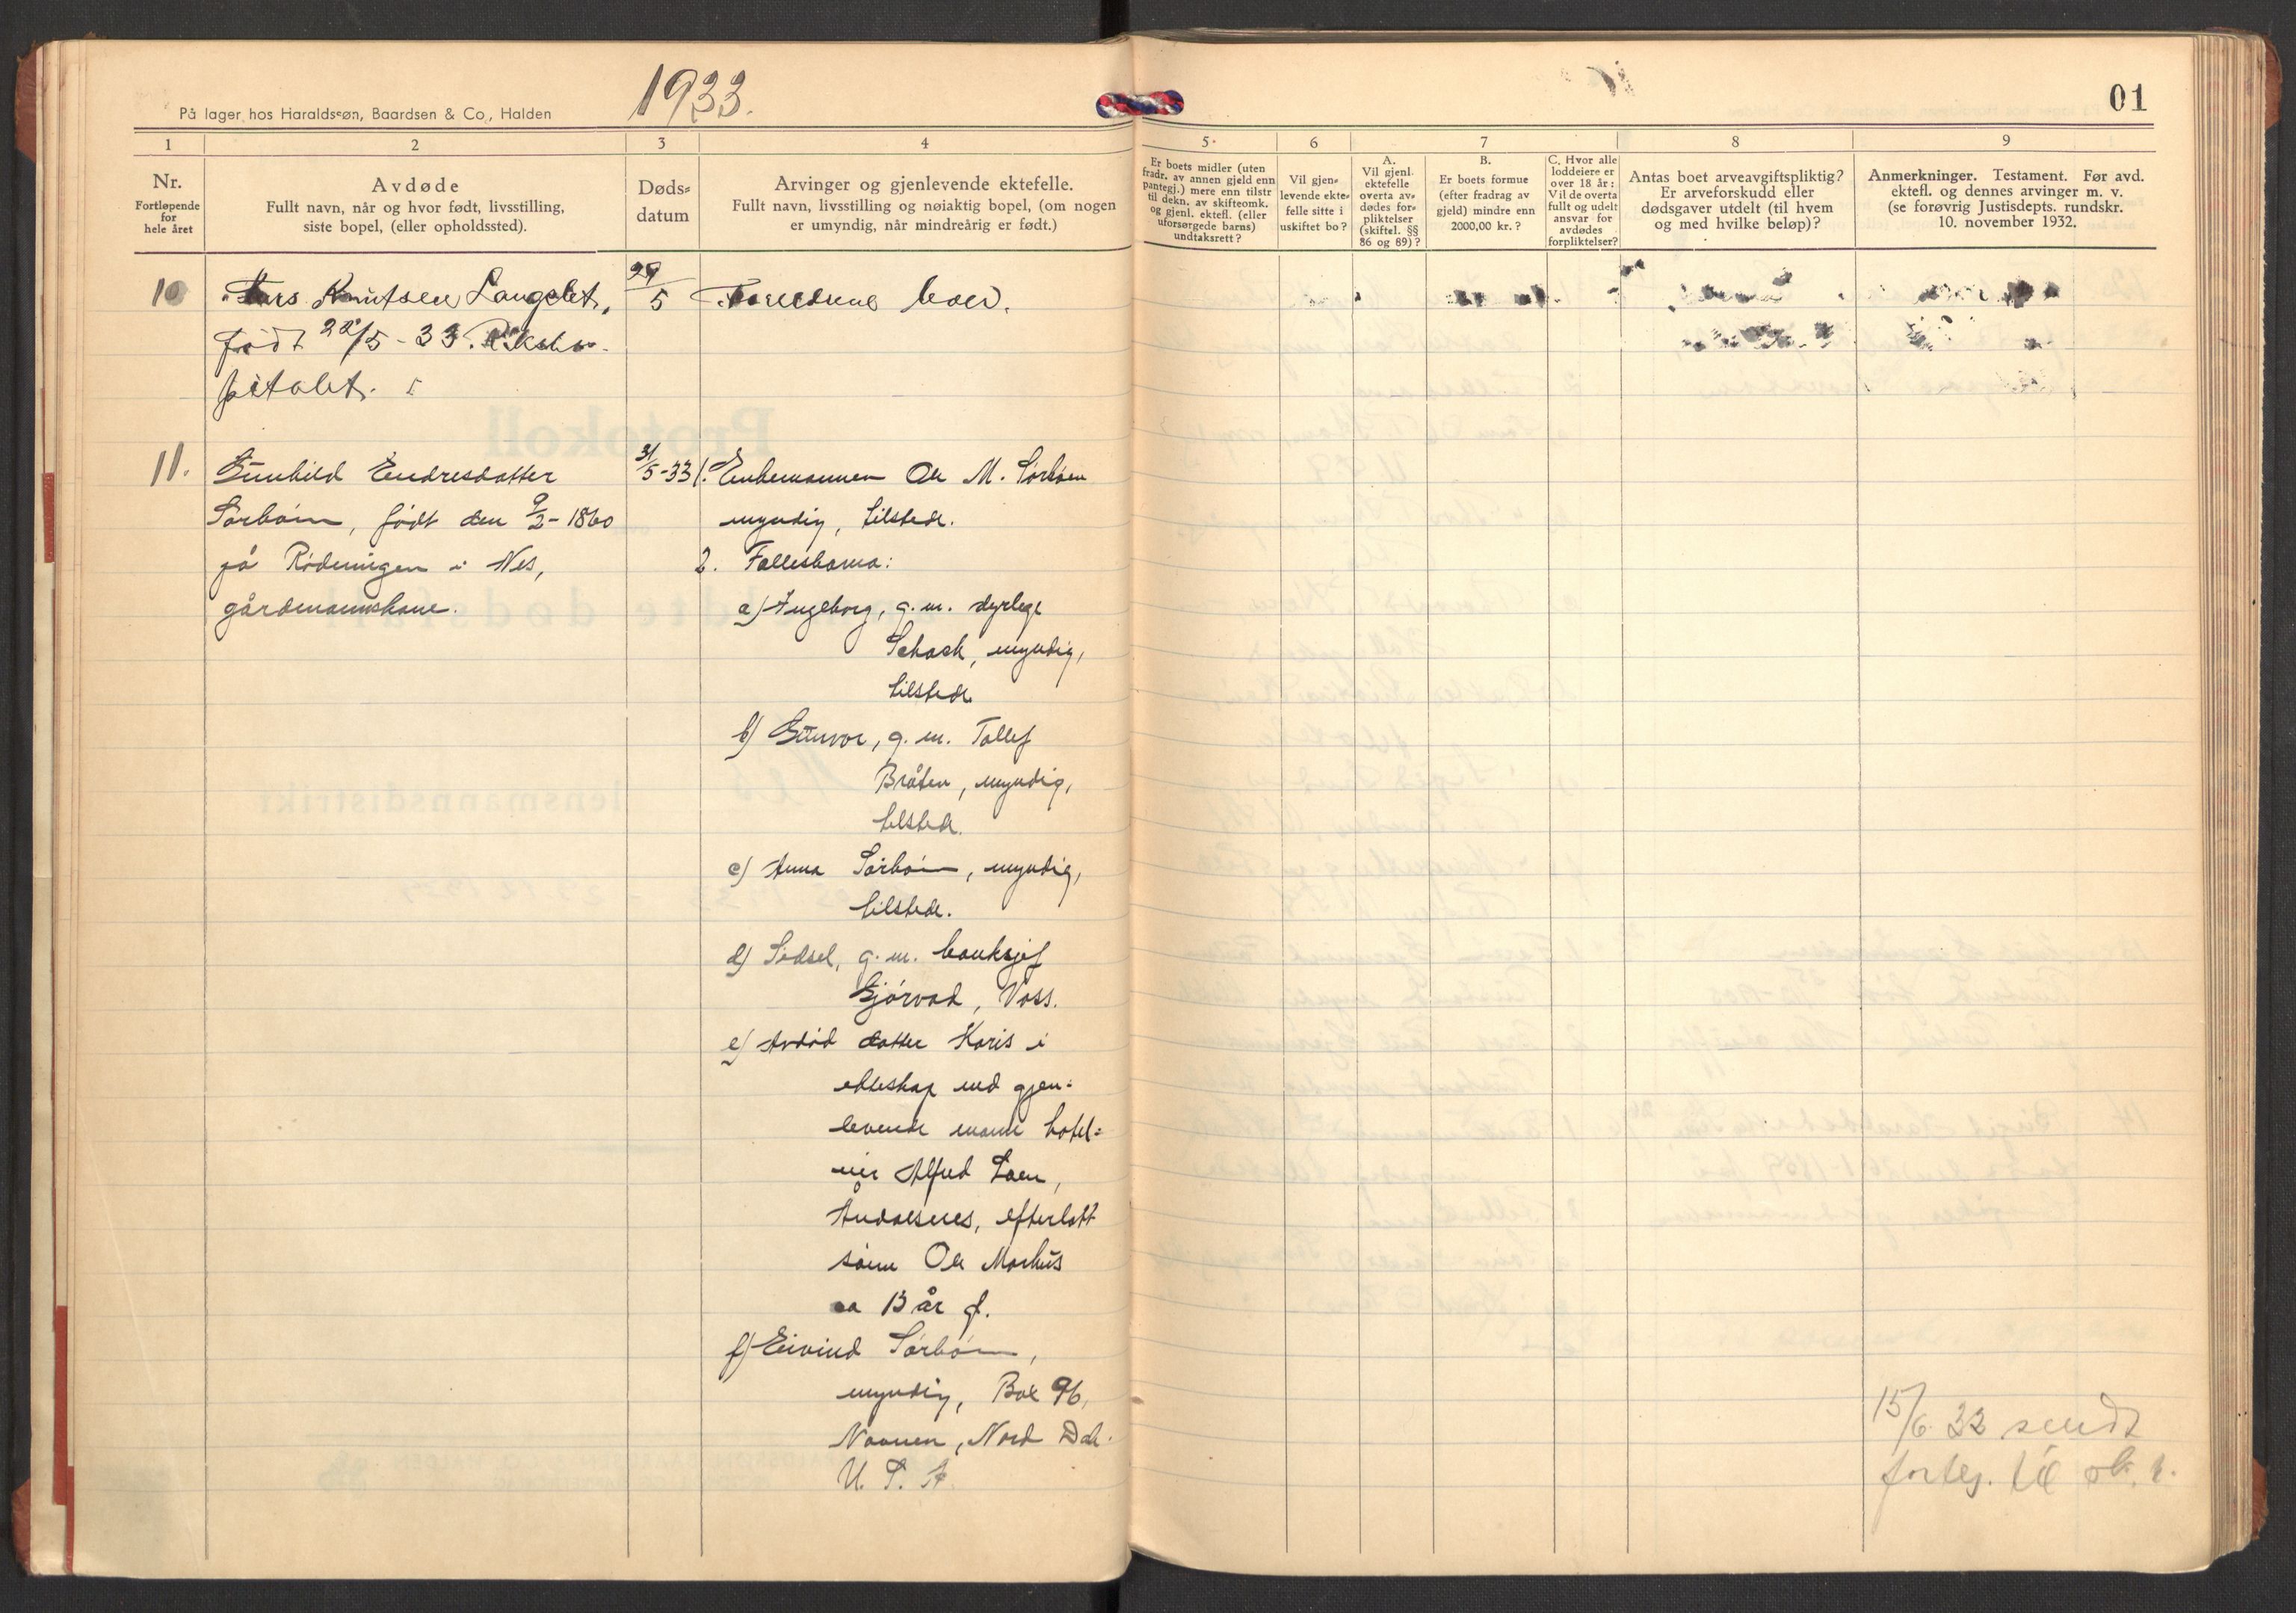 På lager hos Haraldssøn, Baardsen & Co., Halden
1933.
01
1
2
3
4
5
6
7
8
9
Nr.
Fortløpende
for
hele året
Avdøde
Fullt navn, når og hvor født, livsstilling,
siste bopel, (eller opholdssted).
Døds-
datum
Arvinger og gjenlevende ektefelle.
Fullt navn, livsstilling og nøiaktig bopel, (om nogen
er umyndig, når mindreårig er født.)
Er boets midler (uten
fradr. av annen gjeld enn
pantegj.) mere enn tilstr
til dekn. av skifteomk.
og gjenl. ektefl. (eller
uforsørgede barns)
undtaksrett?
Vil gjen-
levende ekte-
felle sitte i
uskiftet bo?
A.
Vil gjenl.
ektefelle
overta av-
dødes for-
pliktelser
(skiftel. §§
86 og 89)?
B.
Er boets formue
(efter fradrag av
gjeld) mindre enn
2000,00 kr.?
C. Hvor alle
loddeiere er
over 18 år:
Vil de overta
fullt og udelt
ansvar for
avdødes
forpliktelser?
Antas boet arveavgiftspliktig?
Er arveforskudd eller
dødsgaver utdelt (til hvem
og med hvilke beløp)?
Anmerkninger. Testament. Før avd.
ektefl. og dennes arvinger m. v.
(se forøvrig Justisdepts. rundskr.
10. november 1932.
10
Lars Knutsen Langslet,
født 28/5 - 33. Riksho-
spitalet.
29/5
Foreldrene lever.
11.
Gunhild Endresdatter
Sørbøin, født den 9/2 - 1860
på Rødningen i Nes,
gårdmannskone.
31/5-33
1. Enkemannen Ole M. Sørbøen
myndig, tilstede.
2. Fellesbarna:
a) Ingeborg, g. m. dyrlege
Schack, myndig,
tilstede
b) Gunvor, g. m. Tollef
Bråten, myndig,
tilstede.
c) Anna Sørbøin, myndig,
tilstede.
d) Sidsel, g. m. banksjef
Gjørvad, Voss.
e) Avdød datter Karis i
ekteskap med gjen-
levende mann hotel-
eier Alfred Loen,
Åndalsnes, efterlatt
sønn Ole Markus
ca 13 år gl.
f) Eivind Sørbøin,
myndig, Box 96,
Noonen, Nord Dak.
U. S. A
15/6 33 sendt
forteg. til sk. r.